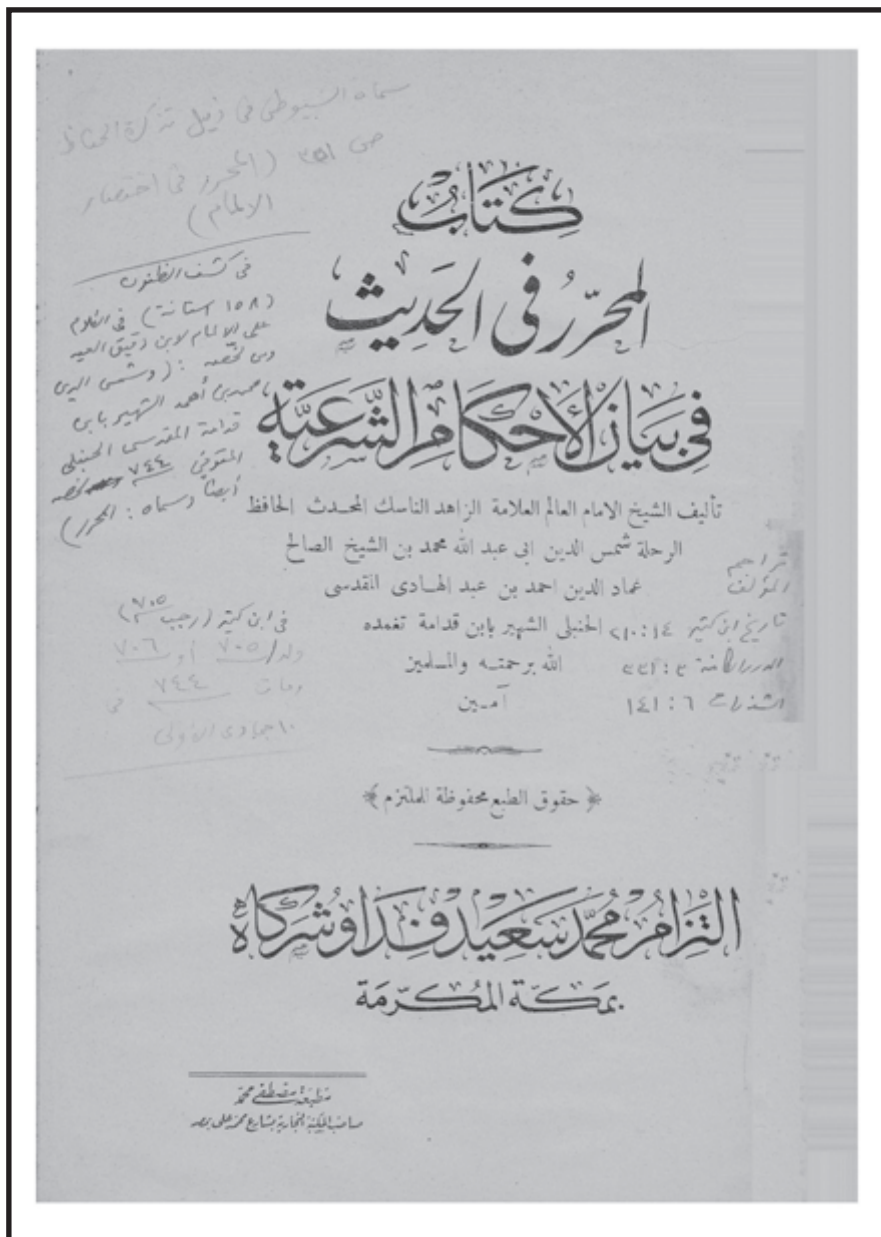 سماه السيوطي في ذيل تذكرة الحفاظ
ص ٣٥١ (المحرر في اختصار
الالمام)
في كشف الظنون
(١٥٨ استانة) في الكلام
على الالمام لابن دقيق العيد
ومن لخصه : (وشمس الدين
محمد بن أحمد الشهير بابن
قدامة المقدسي الحنبلي
المتوفى ٧٤٤ لخصه
أيضا وسماه : المحرر)
في ابن كثير (رجب ٧٠٥)
ولد ٧٠٥ أو ٧٠٦
ومات ٧٤٤ في
١٠ جمادى الأولى
كتاب
المحرّرُ فى الحَدِيث
فِى بَيَانِ الأَحْكَامِ الشَّرعِيَّة
تأليف الشيخ الامام العالم العلامة الزاهد الناسك المحدث الحافظ
الرحلة شمس الدين ابى عبد الله محمد بن الشيخ الصالح
عماد الدين احمد بن عبد الهادى المقدسى
الحنبلى الشهير بابن قدامة تغمده
الله برحمته والمسلمين
آمين
تراجم
المؤلف
تاريخ ابن كثير ١٤ : ٢١٠
الدرر الكامنة ٣ : ٣٣١
الشذرات ٦ : ١٤١
﴿ حقوق الطبع محفوظة للملتزم ﴾
التِزَامُ مُحَمَّد سَعِيد فِدَا وَشُرَكَاهُ
بمَكَّة المُكَرّمَة
مطبعة مصطفى محمد
صاحب المكتبة التجارية بشارع محمد على بمصر